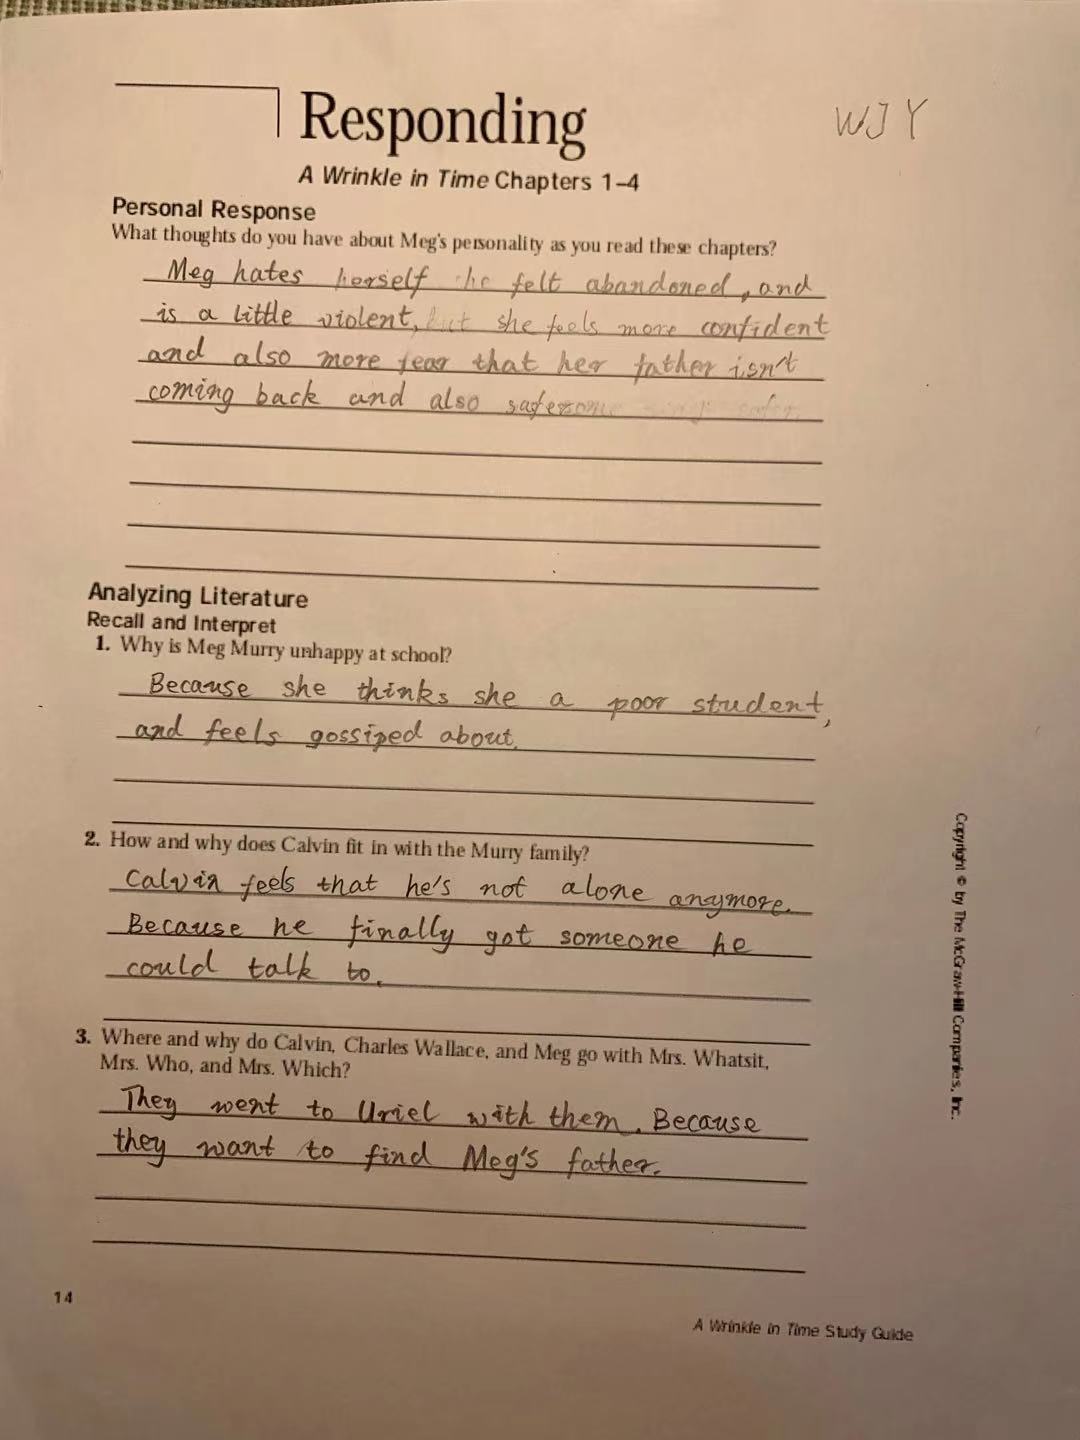 Responding
WJY
A Wrinkle in Time Chapters 1–4
Personal Response
What thoughts do you have about Meg's personality as you read these chapters?
Meg hates herself he felt abandoned, and
is a little violent, but she feels more confident
and also more fear that her father isn't
coming back and also
Analyzing Literature
Recall and Interpret
1. Why is Meg Murry unhappy at school?
Because she thinks she a poor student,
and feels gossiped about.
2. How and why does Calvin fit in with the Murry family?
Calvin feels that he's not alone anymore.
Because he finally got someone he
could talk to.
3. Where and why do Calvin, Charles Wallace, and Meg go with Mrs. Whatsit,
Mrs. Who, and Mrs. Which?
They went to Uriel with them. Because
they want to find Meg's father.
Copyright © by The McGraw-Hill Companies, Inc.
14
A Wrinkle in Time Study Guide